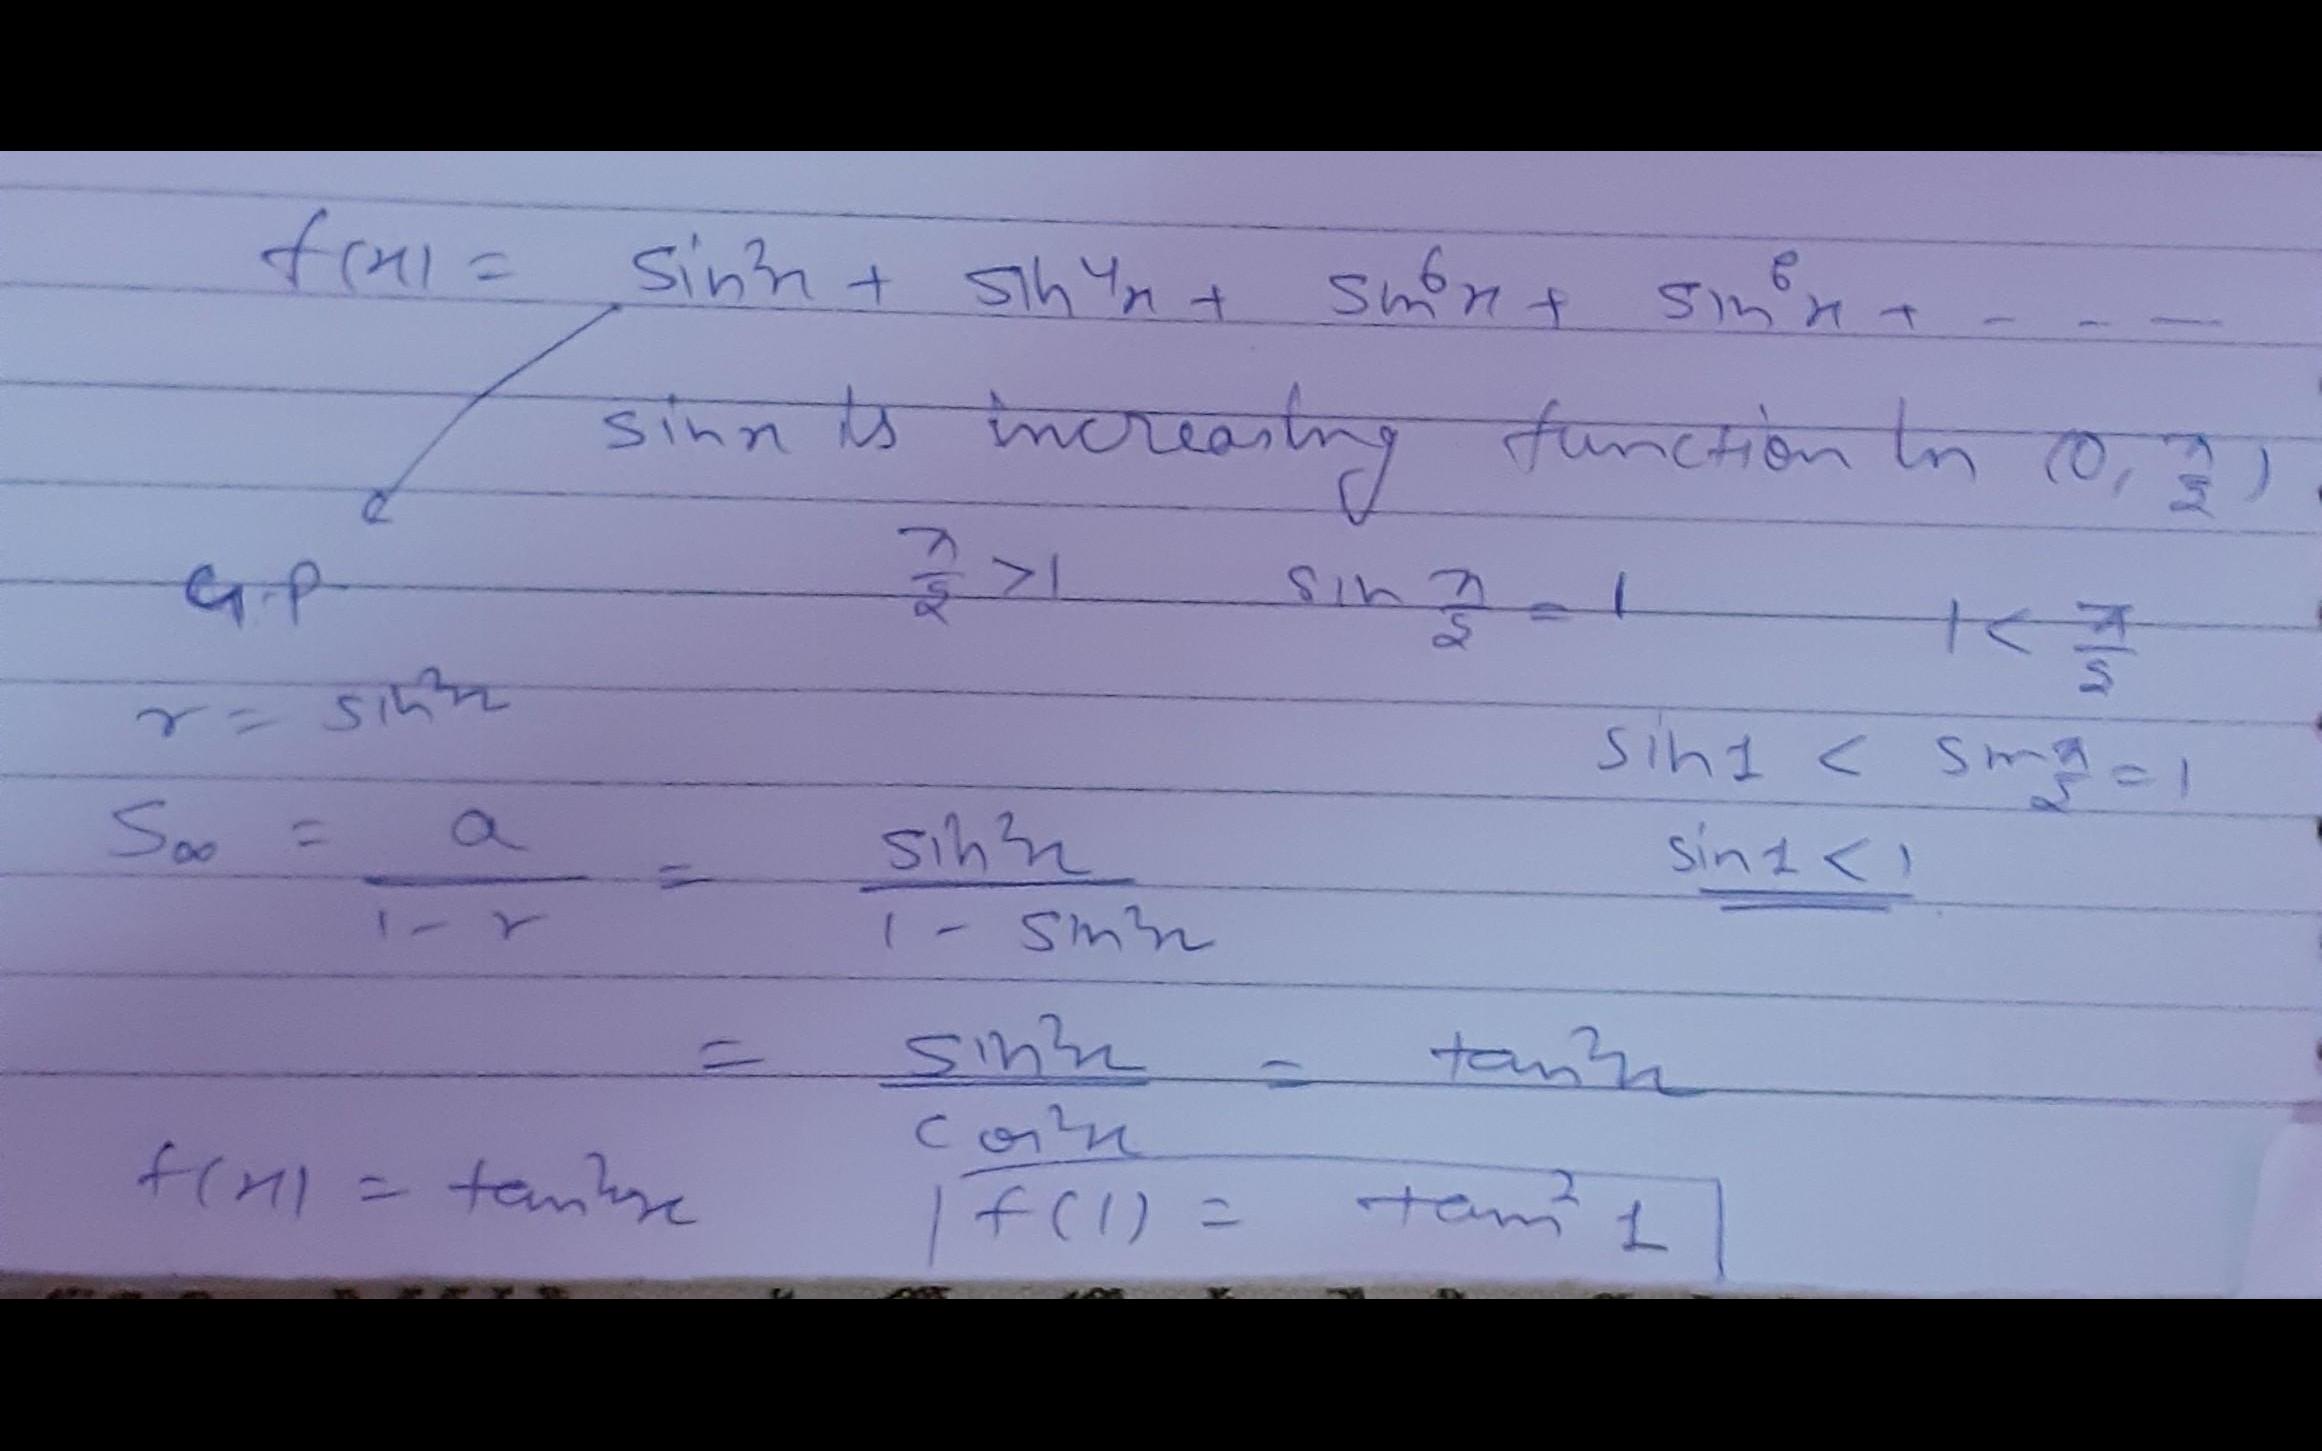 f(x) = sin²x + sin⁴x + sin⁶x + sin⁸x + - - -
sinx is increasing function in (0, π/2)
G.P
π/2 >1 sin π/2 = 1 1< π/2
r = sin²x
sin1 < sin π/2 = 1
S∞ = a/(1-r) = sin²x/(1 - sin²x)
sin1 < 1
= sin²x/cos²x = tan²x
f(x) = tan²x f(1) = tan² 1